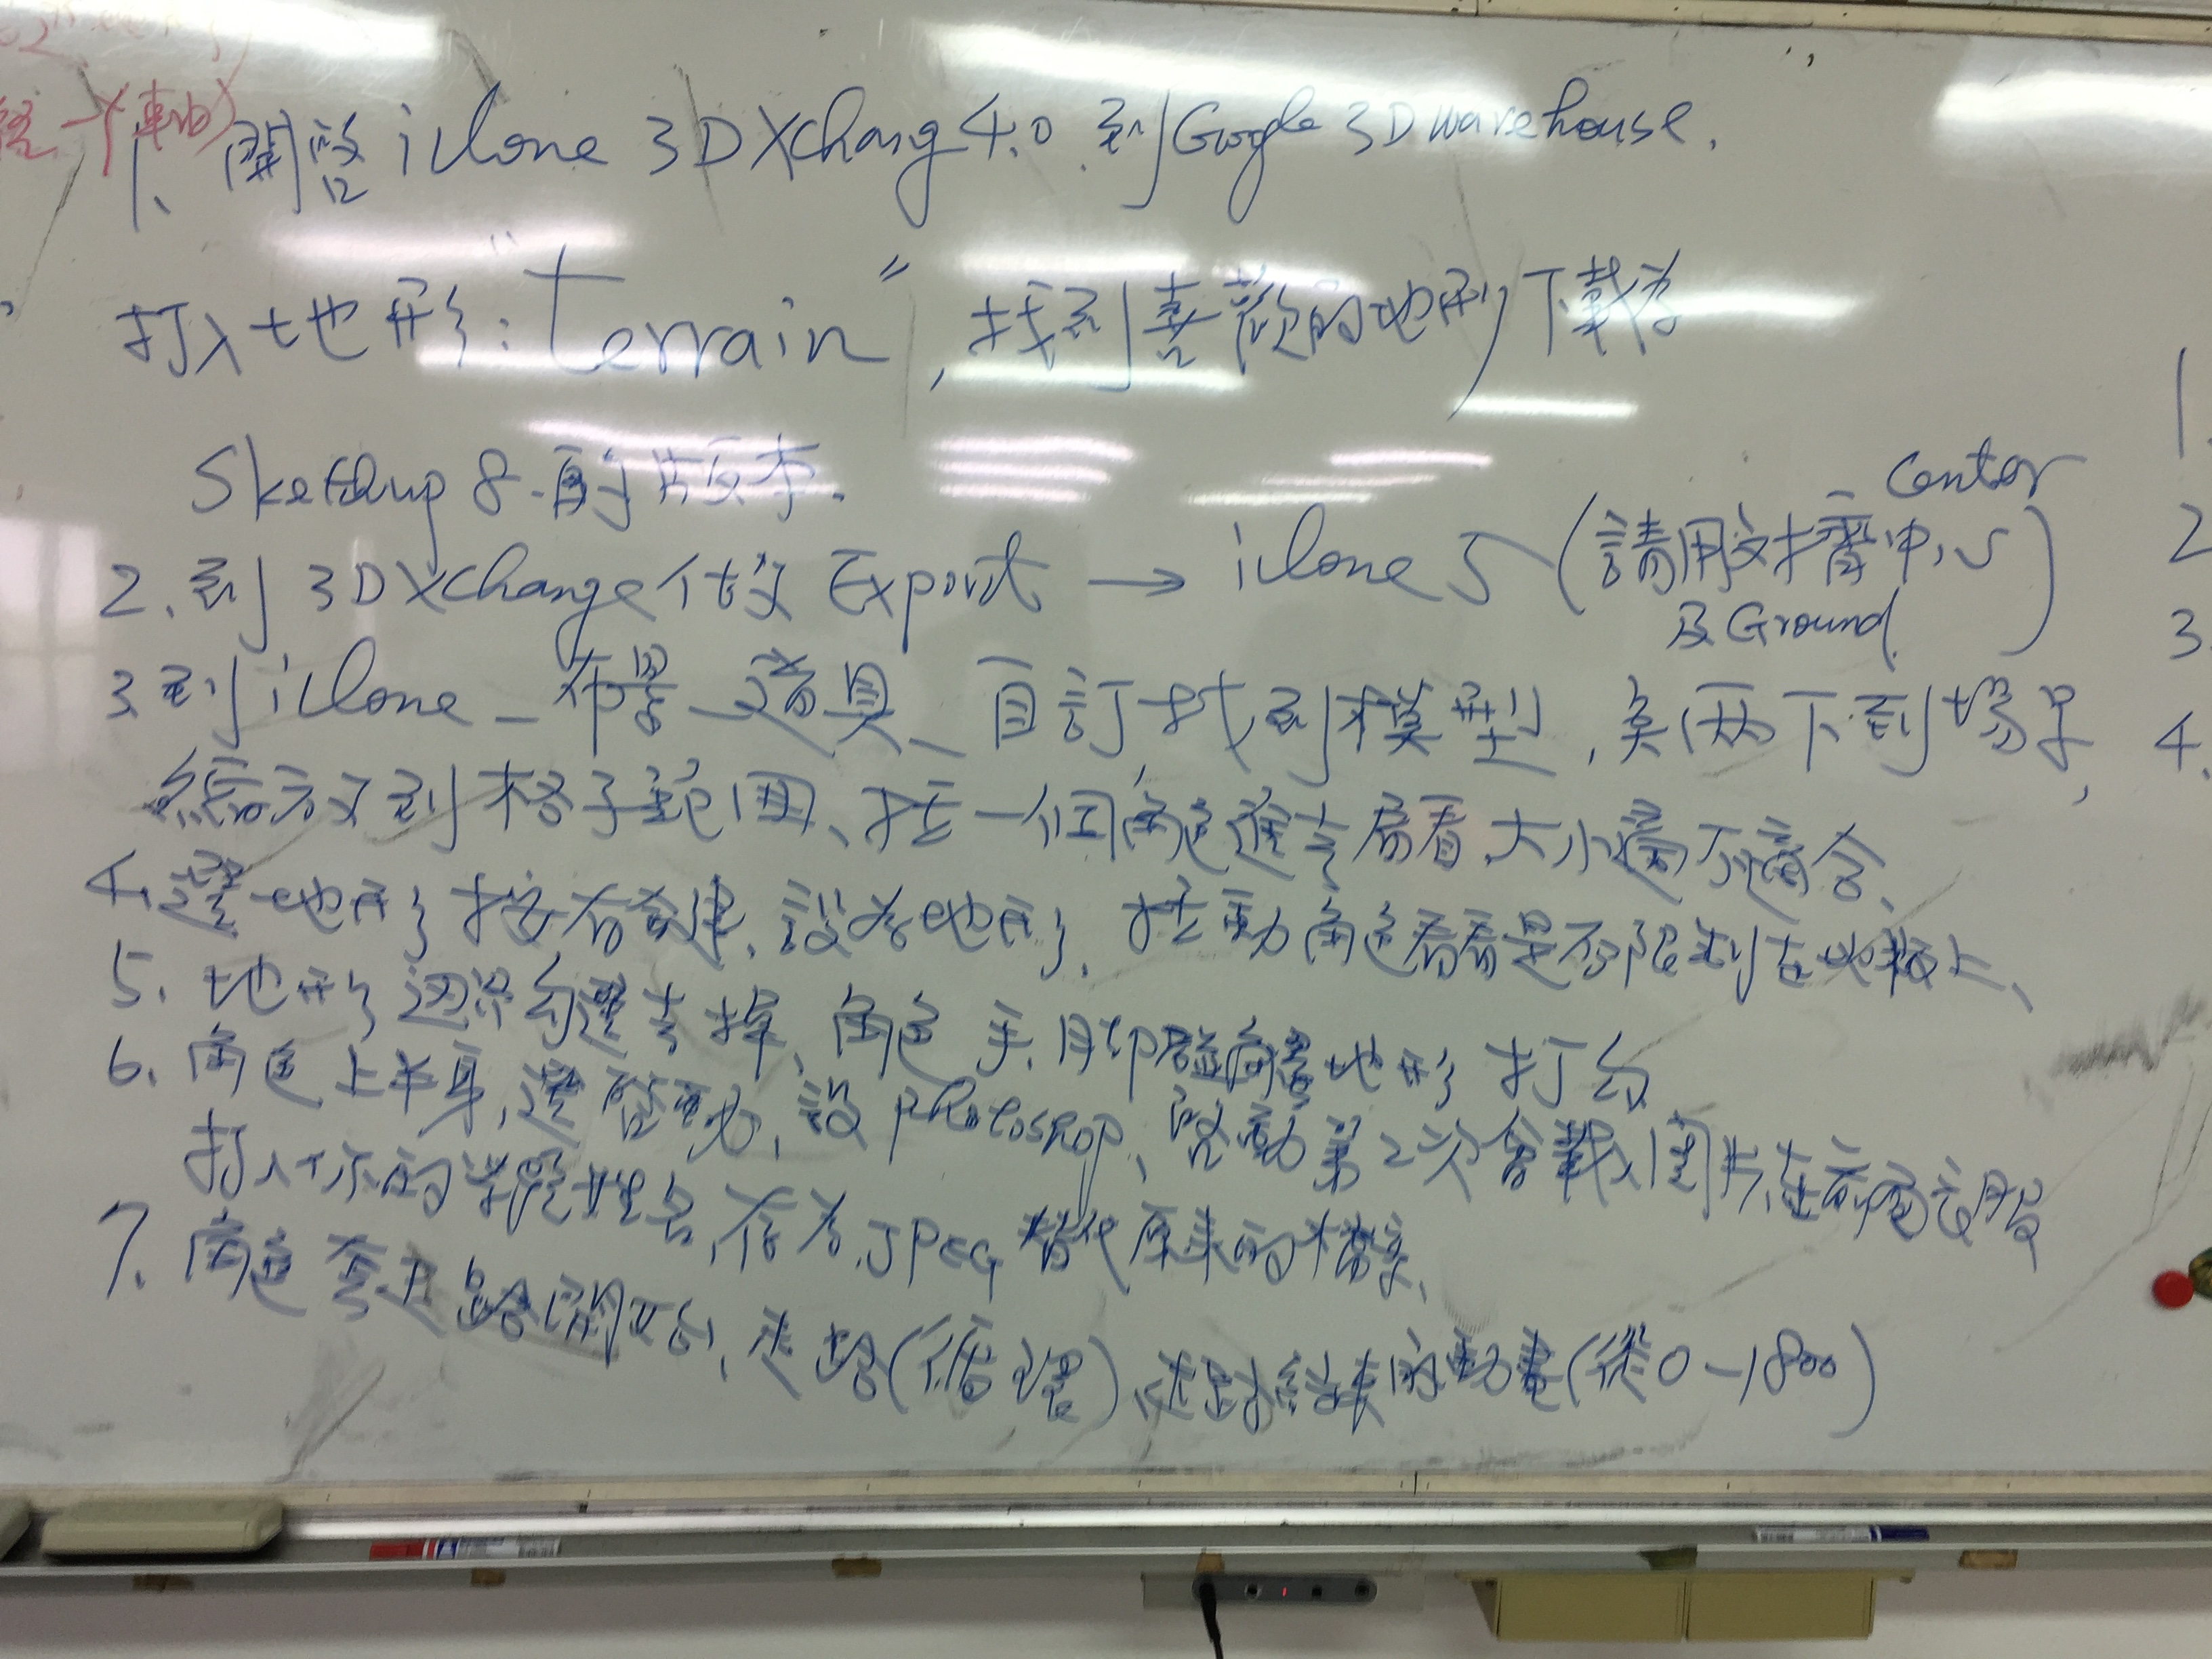 1、開啟 iclone 3DXchang4.0 到Google 3Dwarehouse.
打入地形:"terrain", 找到喜歡的地形下載為
Sketchup 8 的版本.
2、到 3DXchange 做 Export → iclone 5 (請用 中心
Center
及Ground)
3.到iclone_布景_道具_自訂找到模型, 兩下到場景,
縮放到格子範圍、拉一個角色進去看看大小適不適合、
4.選地形按右鍵、設為地形、拉動角色看看是否限制在地板上、
5. 地形邊界勾選去掉、角色手、腳碰觸地形打勾
6. 角色上半身、選啟動、設photoshop、啟動第2次會載入圖片、在衣服
打入你的學號姓名、存為JPEG替代原來的檔案、
7. 角色套走路開始、走路(循環)、走路結束的動畫(從0-1800)
1.
2
3.
4.